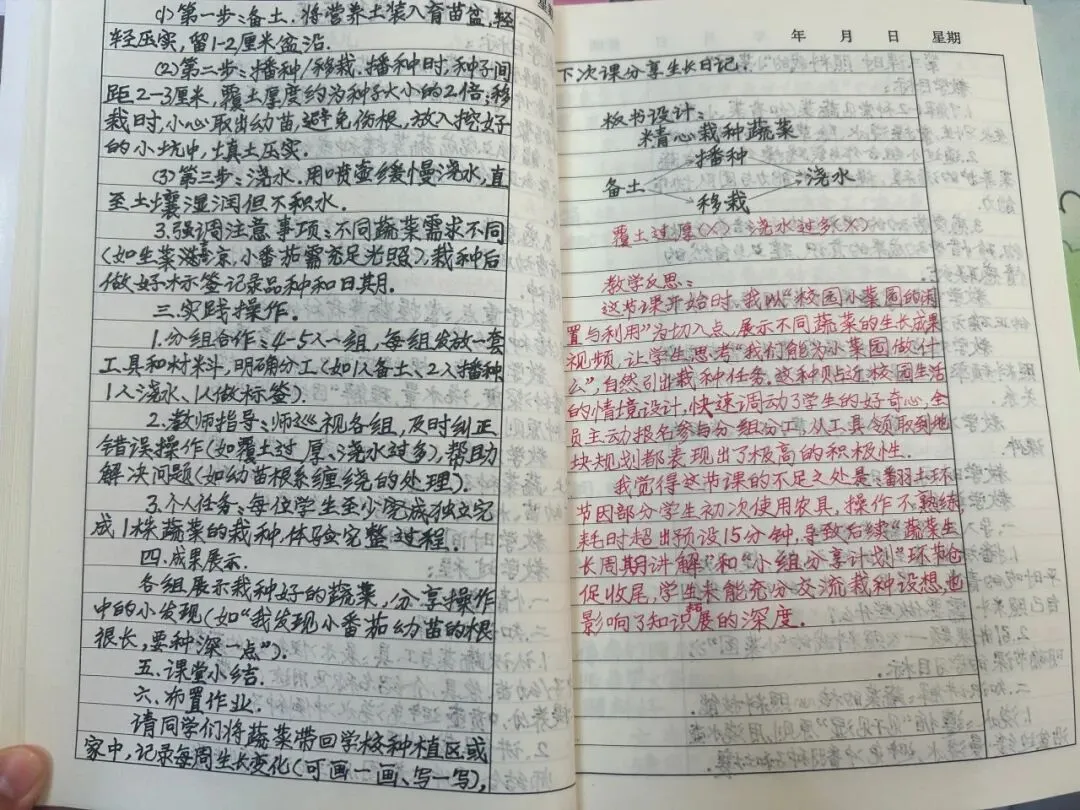 (1)第一步:备土.将营养土装入育苗盆,轻
轻压实,留1-2厘米盆沿.
(2)第二步:播种/移栽.播种时,种子间
距2-3厘米,覆土厚度约为种子大小的2倍;移
栽时,小心取出幼苗,避免伤根,放入挖好
的小坑中,填土压实.
(3)第三步:浇水.用喷壶缓慢浇水,直
至土壤湿润但不积水.
3.强调注意事项:不同蔬菜需求不同
(如生菜喜凉,小番茄需充足光照),栽种后
做好标签记录品种和日期.
三.实践操作.
1.分组合作:4-5人一组,每组发放一套
工具和材料,明确分工(如1人备土、2人播种
1人浇水、1人做标签).
2.教师指导:师巡视各组,及时纠正
错误操作(如覆土过厚、浇水过多),帮助
解决问题(如幼苗根系缠绕的处理).
3.个人任务:每位学生至少完成独立完
成1株蔬菜的栽种,体验完整过程.
四.成果展示.
各组展示栽种好的蔬菜,分享操作
中的小发现(如“我发现小番茄幼苗的根
很长,要种深一点”).
五.课堂小结.
六.布置作业.
请同学们将蔬菜带回学校种植区或
家中,记录每周生长变化(可画一画、写一写),
年 月 日 星期
下次课分享生长日记.
板书设计:
精心栽种蔬菜
播种
备土 浇水
移栽
覆土过厚(×) 浇水过多(×)
教学反思:
这节课开始时,我以“校园小菜园的闲
置与利用”为切入点,展示不同蔬菜的生长成果
视频,让学生思考“我们能为小菜园做什
么”,自然引出栽种任务.这种贴近校园生活
的情境设计,快速调动了学生的好奇心,全
员主动报名参与分组分工,从工具领取到地
块规划都表现出了极高的积极性.
我觉得这节课的不足之处是:翻土环
节因部分学生初次使用农具,操作不熟练,
耗时超出预设15分钟,导致后续“蔬菜生
长周期讲解”和“小组分享计划”环节仓
促收尾,学生未能充分交流栽种设想,也
影响了知识拓展的深度.